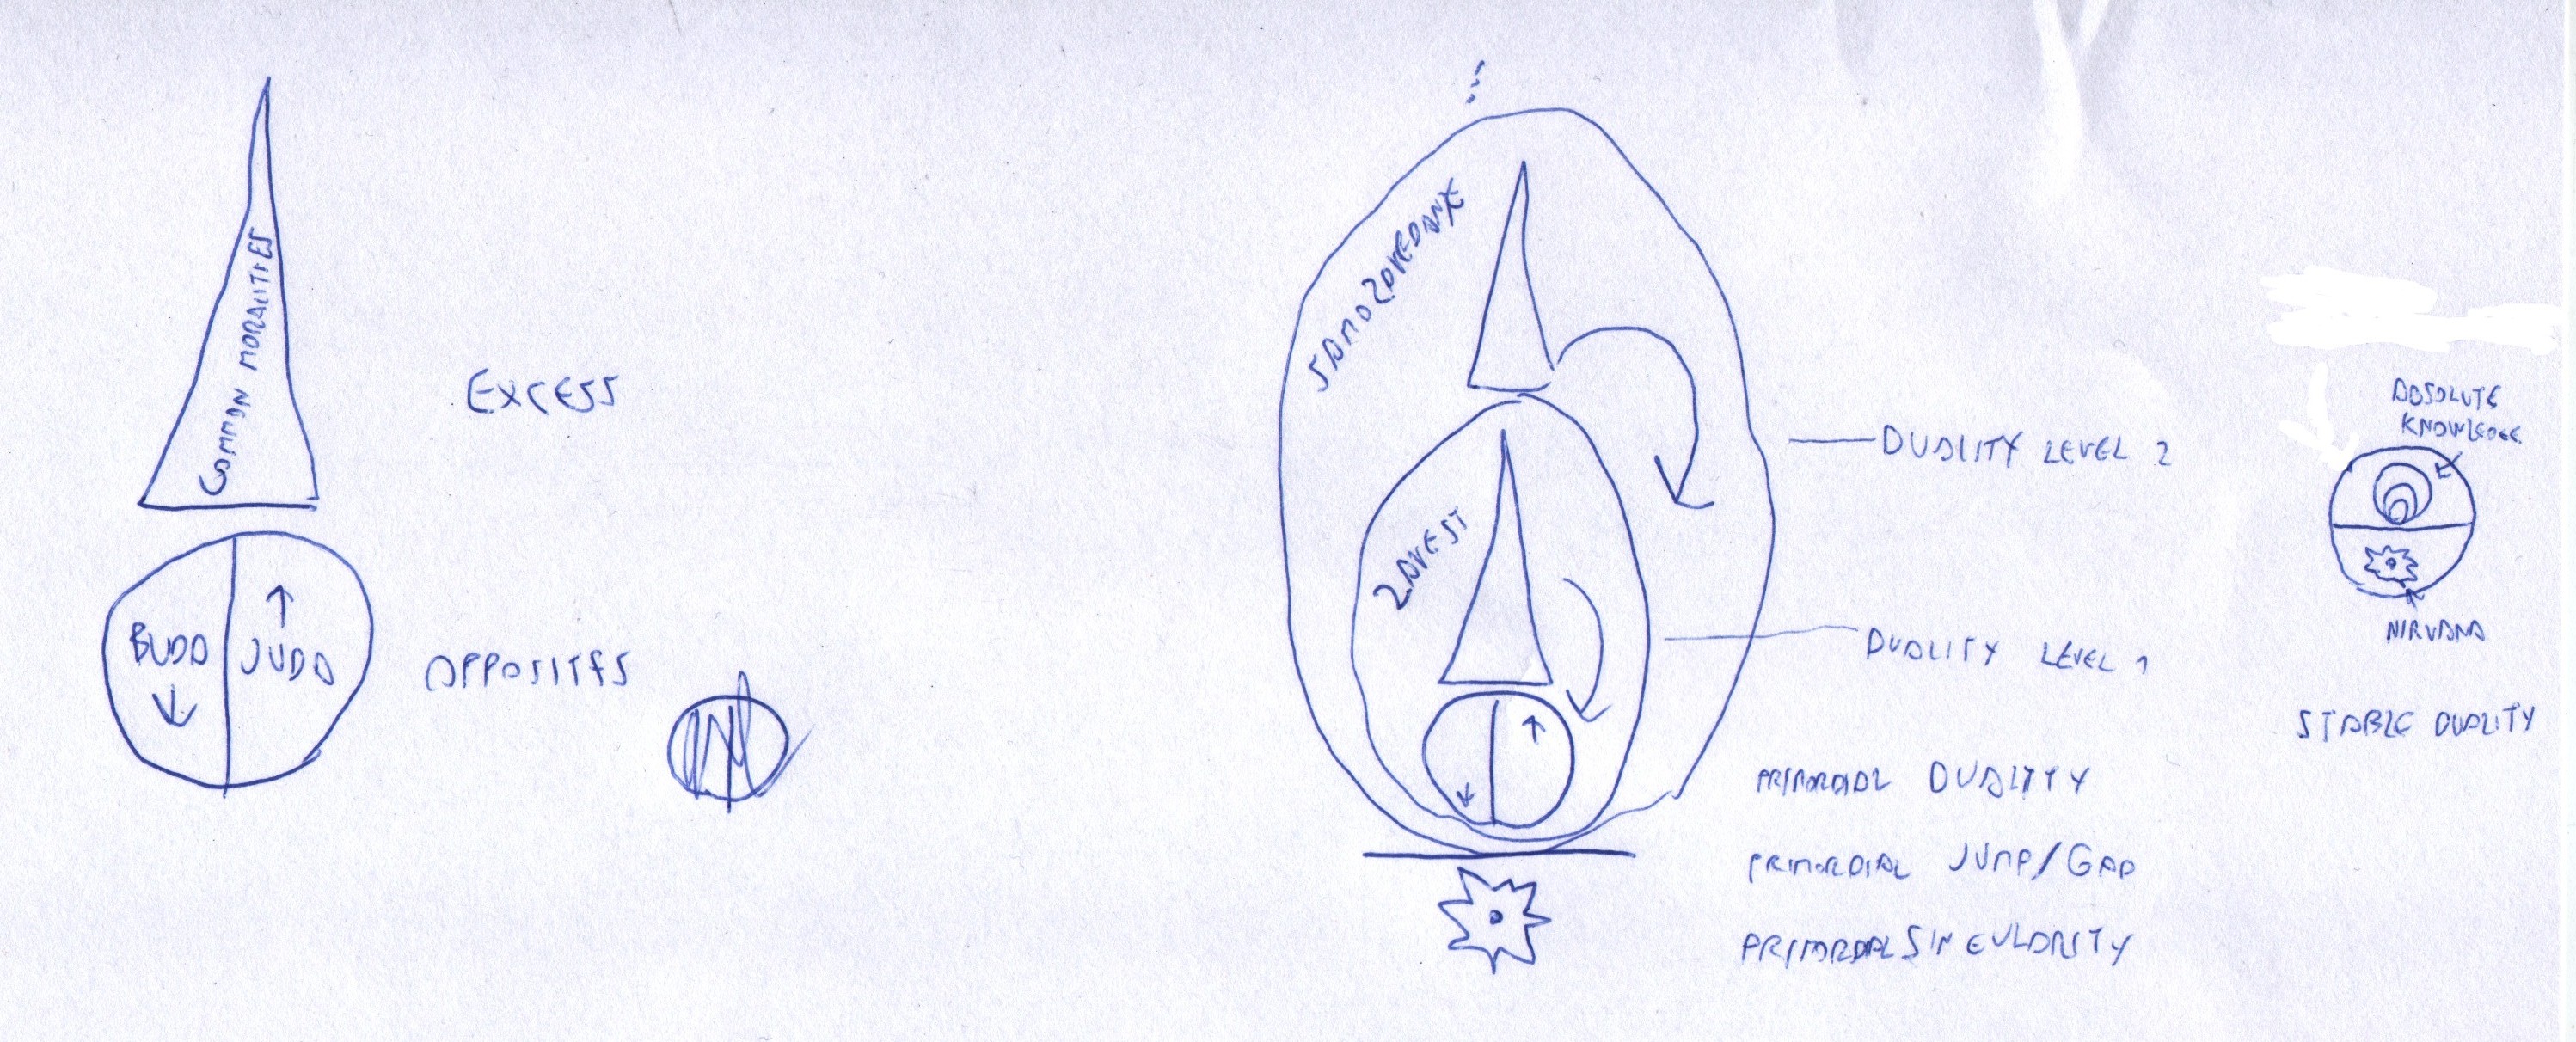 COMMON MORALITIES
EXCESS
BUDA
JUDA
OPPOSITES
ZAVEST
DUALITY LEVEL 2
DUALITY LEVEL 1
PRIMORDIAL DUALITY
PRIMORDIAL JUMP/GAP
PRIMORDIAL SINGULARITY
ABSOLUTE
KNOWLEDGE
NIRVANA
STABLE DUALITY